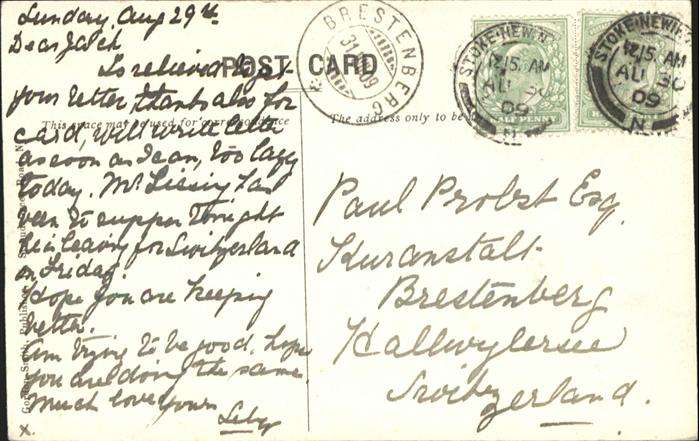 Sunday, Aug 29th
Dear
So relieved to get
your letter, thanks also for
card, will write letter
as soon as I can, too lazy
today. Mr has
been to supper tonight
he is leaving for Switzerland
on Friday
Hope you are keeping
better.
Am trying to be good, hope
you are doing the same
Much love yours
x
POST CARD
This space may be used for correspondence
The address only to be
BRESTENBERG
31
09
STOKE NEWN
12.15 AM
AU 30
09
N
HALF PENNY
STOKE NEWN
12.15 AM
AU 30
09
N
Paul Probst Esq.
Kuranstalt
Brestenberg
Hallwylersee
Switzerland.